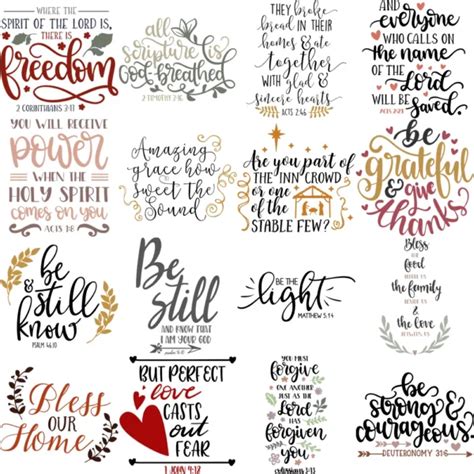 WHERE THE
SPIRIT OF THE LORD IS,
THERE IS
freedom
2 CORINTHIANS 3:17
all
scripture is
God-breathed
2 TIMOTHY 3:16
They broke
bread in their
homes & ate
together
with glad &
sincere hearts
ACTS 2:46
And
everyone
who calls on
the name
of the
Lord
will be
saved.
ACTS 2:21
YOU WILL RECEIVE
POWER
WHEN THE
HOLY SPIRIT
COMES ON YOU
ACTS 1:8
Amazing
grace how
sweet the
Sound
Are you part of
the INN CROWD
or one
of the
STABLE FEW?
be
grateful
& give
thanks
be
& still
know
PSALM 46:10
Be
Still
AND KNOW THAT
I AM YOUR GOD
BE THE
light
MATTHEW 5:14
Bless
the food
the family
&
the love
Bless
Our
Home
BUT PERFECT
love
CASTS
OUT
FEAR
1 JOHN 4:18
YOU MUST
forgive
ONE ANOTHER
JUST AS THE
Lord
HAS
forgiven
YOU
be
strong &
courageous
DEUTERONOMY 31:6